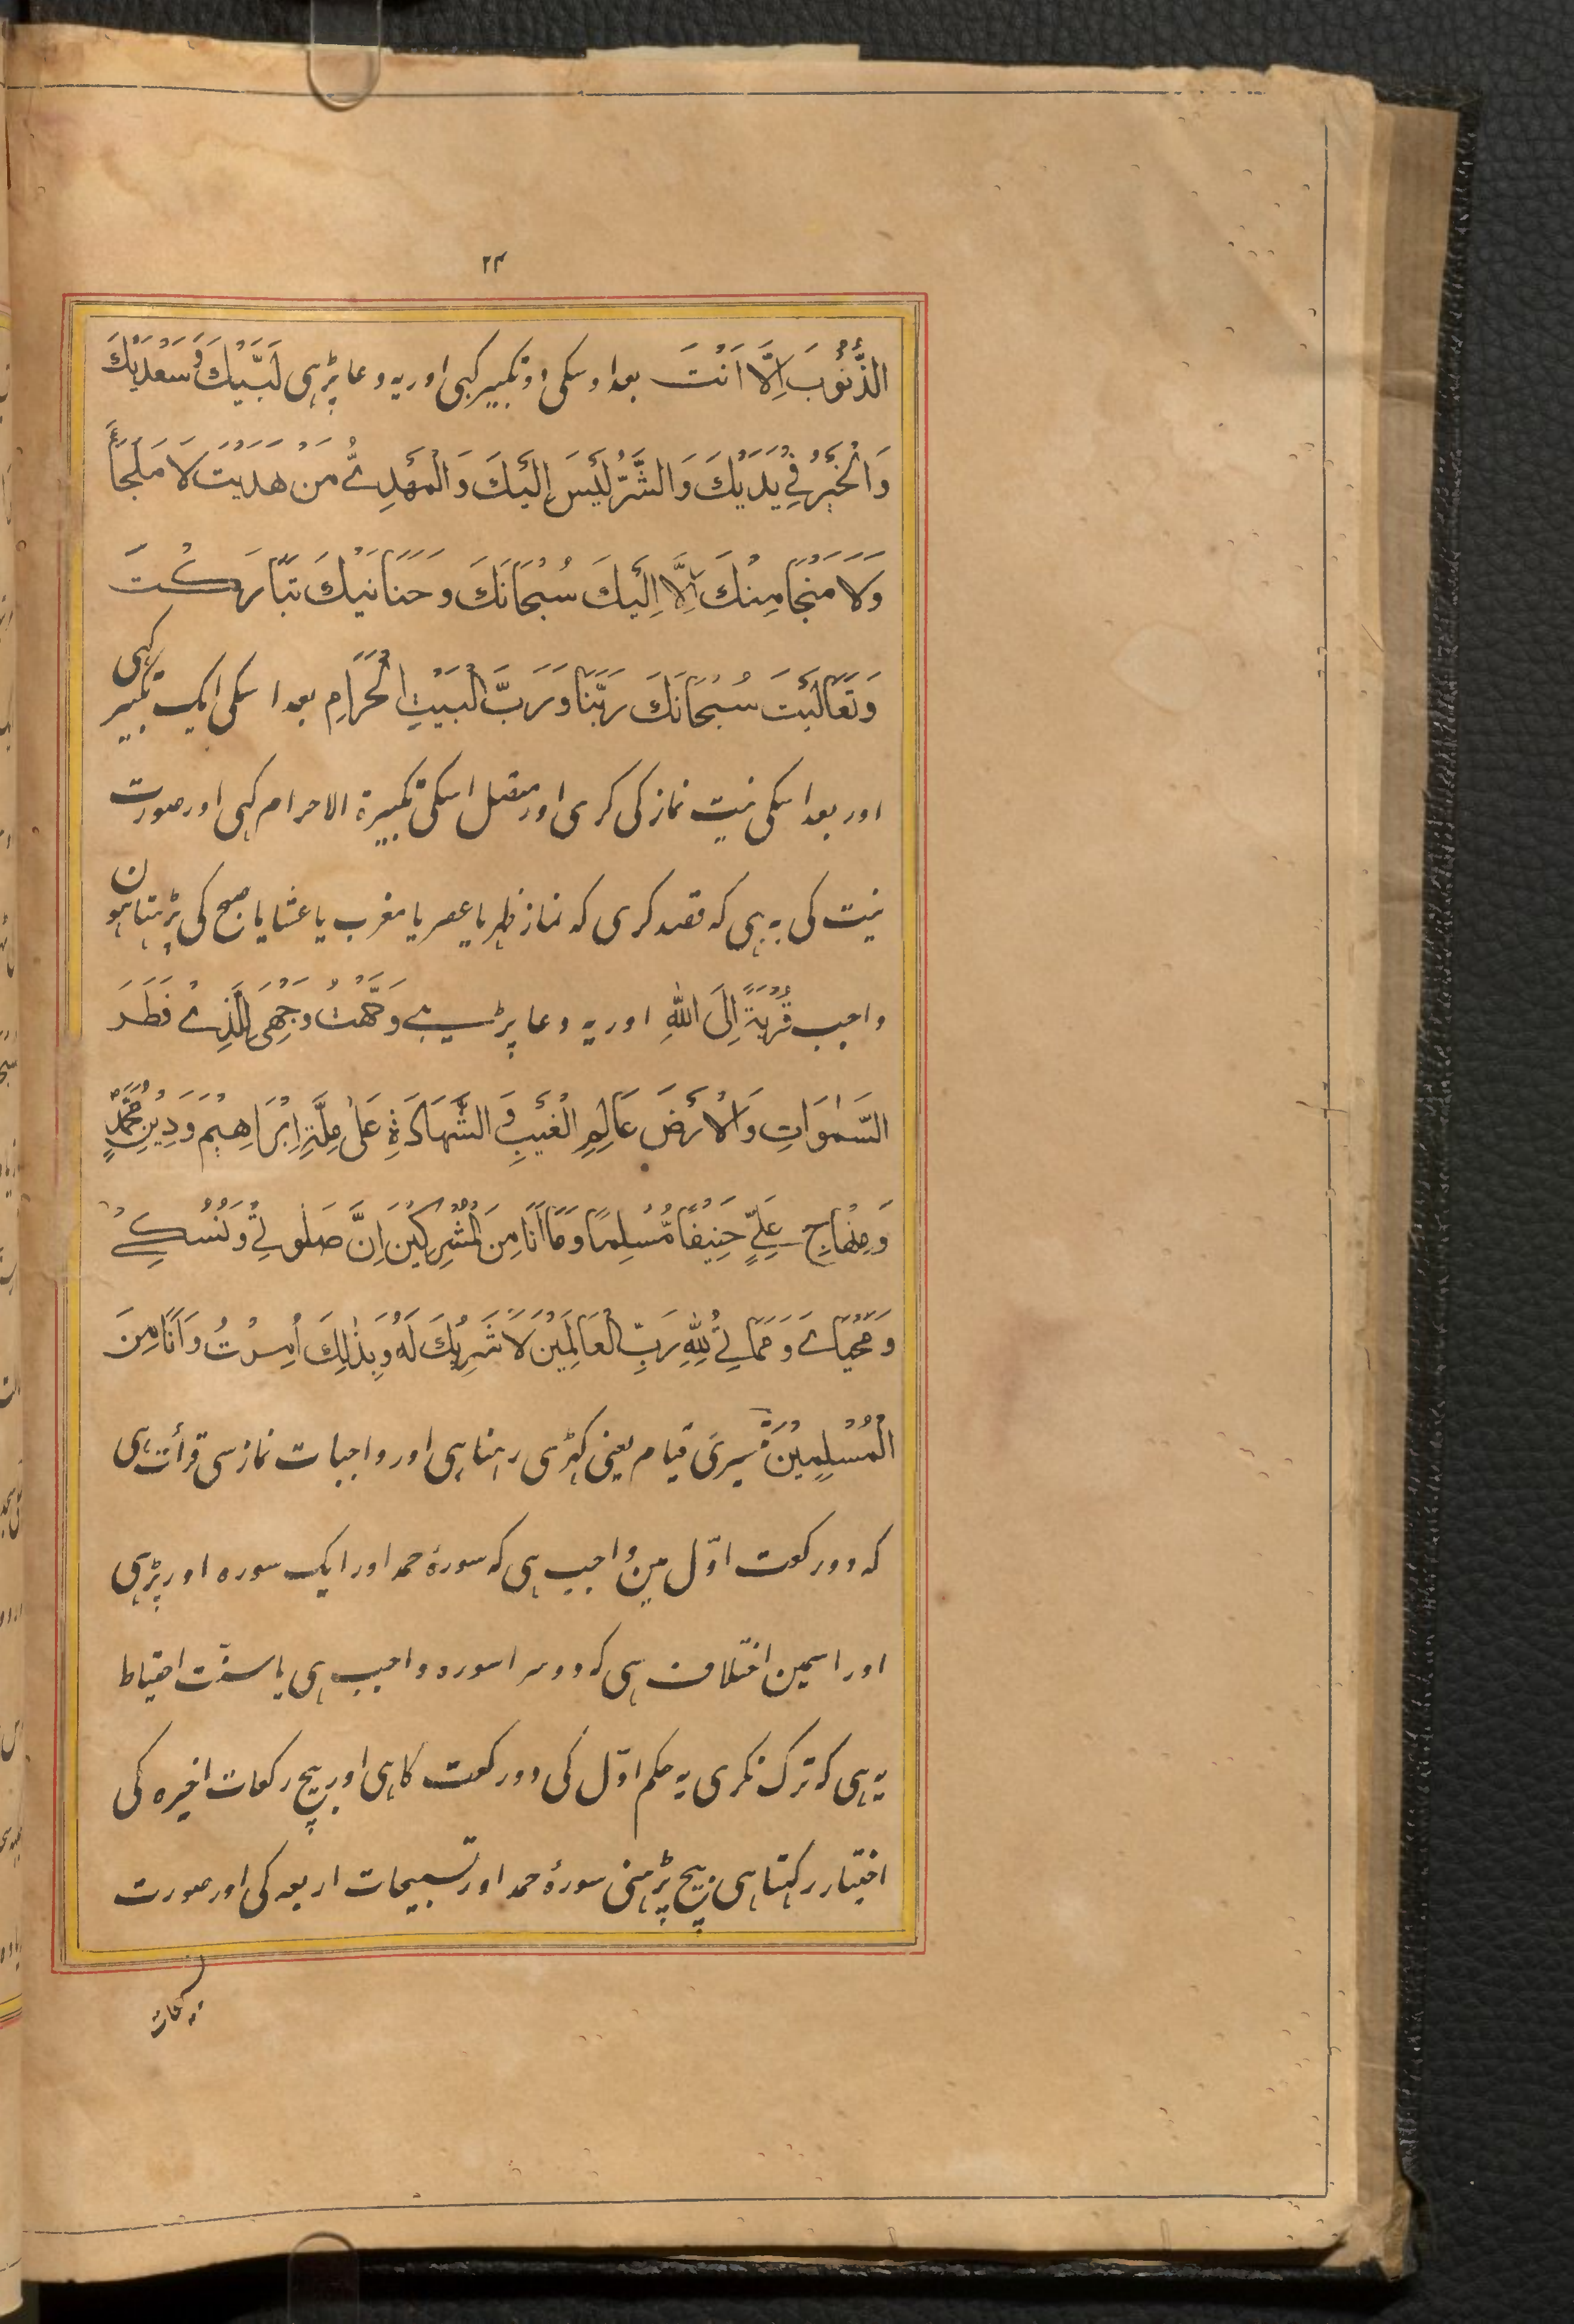 ۲۴
الذُّنُوْبَ اِلَّا اَنْتَ بعد اوسکی دو تکبیر کہی اور یہ دعا پڑہی لَبَّيْكَ وَسَعْدَيْكَ
وَالْخَيْرُ فِيْ يَدَيْكَ وَالشَّرُّ لَيْسَ اِلَيْكَ وَالْمَهْدِيُّ مَنْ هَدَيْتَ لَا مَلْجَأَ
وَلَا مَنْجَا مِنْكَ اِلَّا اِلَيْكَ سُبْحَانَكَ وَحَنَانَيْكَ تَبَارَكْتَ
وَتَعَالَيْتَ سُبْحَانَكَ رَبَّنَا وَرَبَّ الْبَيْتِ الْحَرَامِ بعد اسکی ایک تکبیر کہی
اور بعد اسکی نیت نماز کی کری اور متصل اسکی تکبیرة الاحرام کہی اور صورت
نیت کی یہ ہی کہ قصد کری کہ نماز ظہر یا عصر یا مغرب یا عشا یا صبح کی پڑہتا ہون
واجب قُرْبَةً اِلَى اللّٰهِ اور یہ دعا پڑہی وَجَّهْتُ وَجْهِيَ لِلَّذِيْ فَطَرَ
السَّمٰوَاتِ وَالْاَرْضَ عَالِمِ الْغَيْبِ وَالشَّهَادَةِ عَلٰى مِلَّةِ اِبْرَاهِيْمَ وَدِيْنِ مُحَمَّدٍ
وَمِنْهَاجِ عَلِيٍّ حَنِيْفًا مُّسْلِمًا وَمَا اَنَا مِنَ الْمُشْرِكِيْنَ اِنَّ صَلٰوتِيْ وَنُسُكِيْ
وَمَحْيَايَ وَمَمَاتِيْ لِلّٰهِ رَبِّ الْعَالَمِيْنَ لَا شَرِيْكَ لَهُ وَبِذٰلِكَ اُمِرْتُ وَاَنَا مِنَ
الْمُسْلِمِيْنَ تیسری قیام یعنی کہڑی رہنا ہی اور واجبات نماز سی قرأت ہی
کہ دو رکعت اوّل مین واجب ہی کہ سورۂ حمد اور ایک سورہ اور پڑہی
اور اسمین اختلاف ہی کہ دوسرا سورہ واجب ہی یا سنّت احتیاط
یہ ہی کہ ترک نکری یہ حکم اوّل کی دو رکعت کا ہی اور بیچ رکعات اخیرہ کی
اختیار رکہتا ہی بیچ پڑہنی سورۂ حمد اور تسبیحات اربعہ کی اور صورت